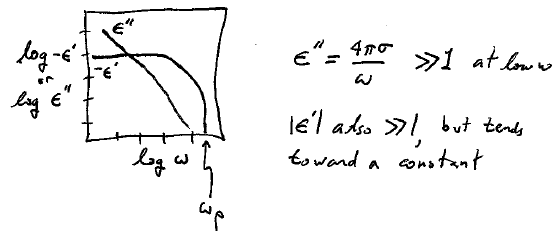 ϵ''
log -ϵ'
or
log ϵ''
-ϵ'
log ω
ωp
ϵ'' = 4πσ/ω ≫1 at low ω
|ϵ'| also ≫1, but tends
toward a constant